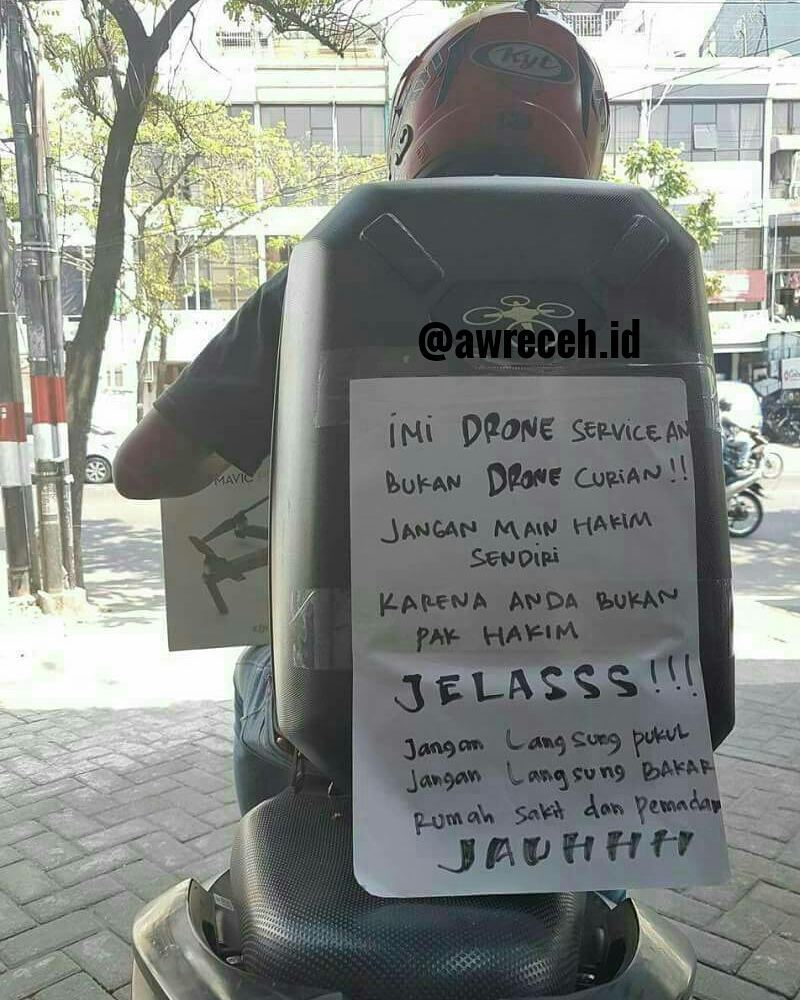 Kyt
@awreceh.id
INI DRONE SERVICEAN
BUKAN DRONE CURIAN!!
JANGAN MAIN HAKIM
SENDIRI
KARENA ANDA BUKAN
PAK HAKIM
JELASSS!!!
Jangan Langsung pukul
Jangan Langsung BAKAR
Rumah Sakit dan Pemadam
JAUHHHH
MAVIC